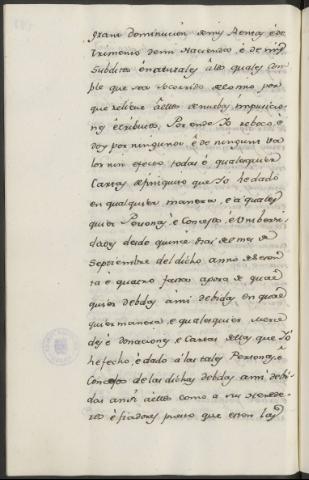 grani dominucion de mis Rentas, é de-
trimento de mi Hacienda, é de mis
Subditos é naturales á los quales Cum-
ple que sea socorrido de como por
que relieve á ellos de nuebas imposicio-
nes é tributos, Por ende Yo reboco é
doy por ningunos é de ningun va-
lor nin efecto todas é qualesquier
Cartas de finiquito que Yo he dado
en qualquier manera, é á quales-
quier Personas é Concejos é Universi-
dades desde quince dias del mes de
Septiembre del dicho anno de seten-
ta e quatro fasta agora de quales-
quier debdas á mi debidas en quales-
quier manera, e qualesquier merce-
des é donaciones e Cartas dellas que Yo
he fecho, é dado á las tales Personas, é
Concejos de las dichas debdas á mi debi-
das ansi á ellos como á sus Herede-
ros é fiadores puesto que esten las